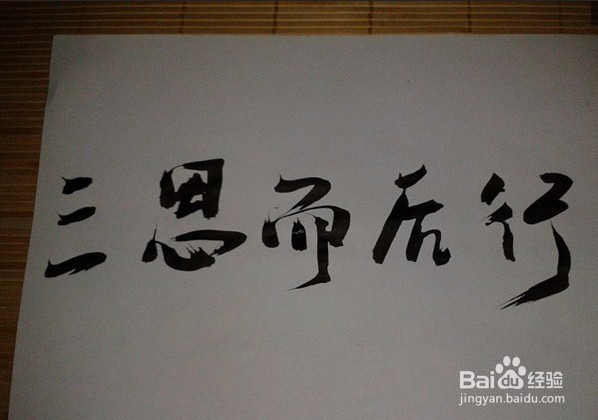 三思而后行
Bai du 经验
jingyan.baidu.com